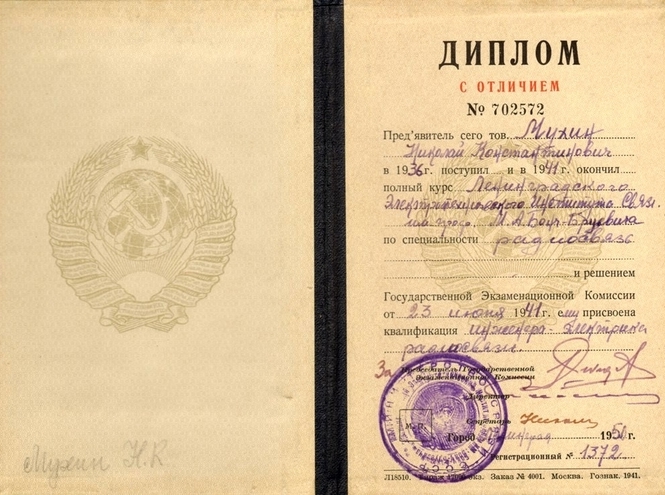 Мухин Н.К
ДИПЛОМ
С ОТЛИЧИЕМ
№ 702572
Пред'явитель сего тов. Мухин
Николай Константинович
в 1936г. поступил и в 1941г. окончил
полный курс Ленинградского
Электротехнического Института Связи
им. проф. М.А.Бонч-Бруевича
по специальности радиосвязь
и решением
Государственной Экзаменационной Комиссии
от 23 июня 1941г. ему присвоена
квалификация инженера-электрика
радиосвязи.
За Председатель Государственной
Экзаменационной Комиссии
Директор
Секретарь
М.П.
Город Ленинград 1950г.
Регистрационный № 1372
Л18510. Заказ № 4001. Москва. Гознак. 1941.